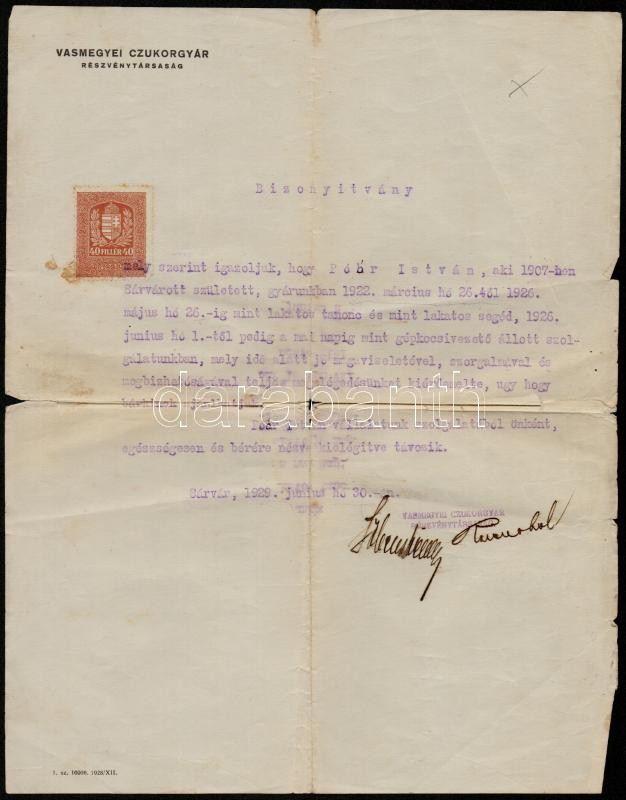 VASMEGYEI CZUKORGYÁR
RÉSZVÉNYTÁRSASÁG
Bizonyitvány
40 FILLÉR 40
mely szerint igazoljuk, hogy Póór István, aki 1907-ben
Sárvárott született, gyárunkban 1922. március hó 26.-tól 1926.
május hó 26.-ig mint lakatos tanonc és mint lakatos segéd, 1926.
junius hó 1.-től pedig a mai napig mint gépkocsivezető állott szol-
gálatunkban, mely idő alatt jó magaviseletével, szorgalmával és
megbizhatóságával teljes megelégedésünket kiérdemelte, ugy hogy
bárkinek
Póór István szolgálatból önként,
egészségesen és bérére nézve kielégitve távozik.
Sárvár, 1929. junius hó 30.-án.
VASMEGYEI CZUKORGYÁR
RÉSZVÉNYTÁRSASÁG
darabanth
1. sz. 1928/XII.